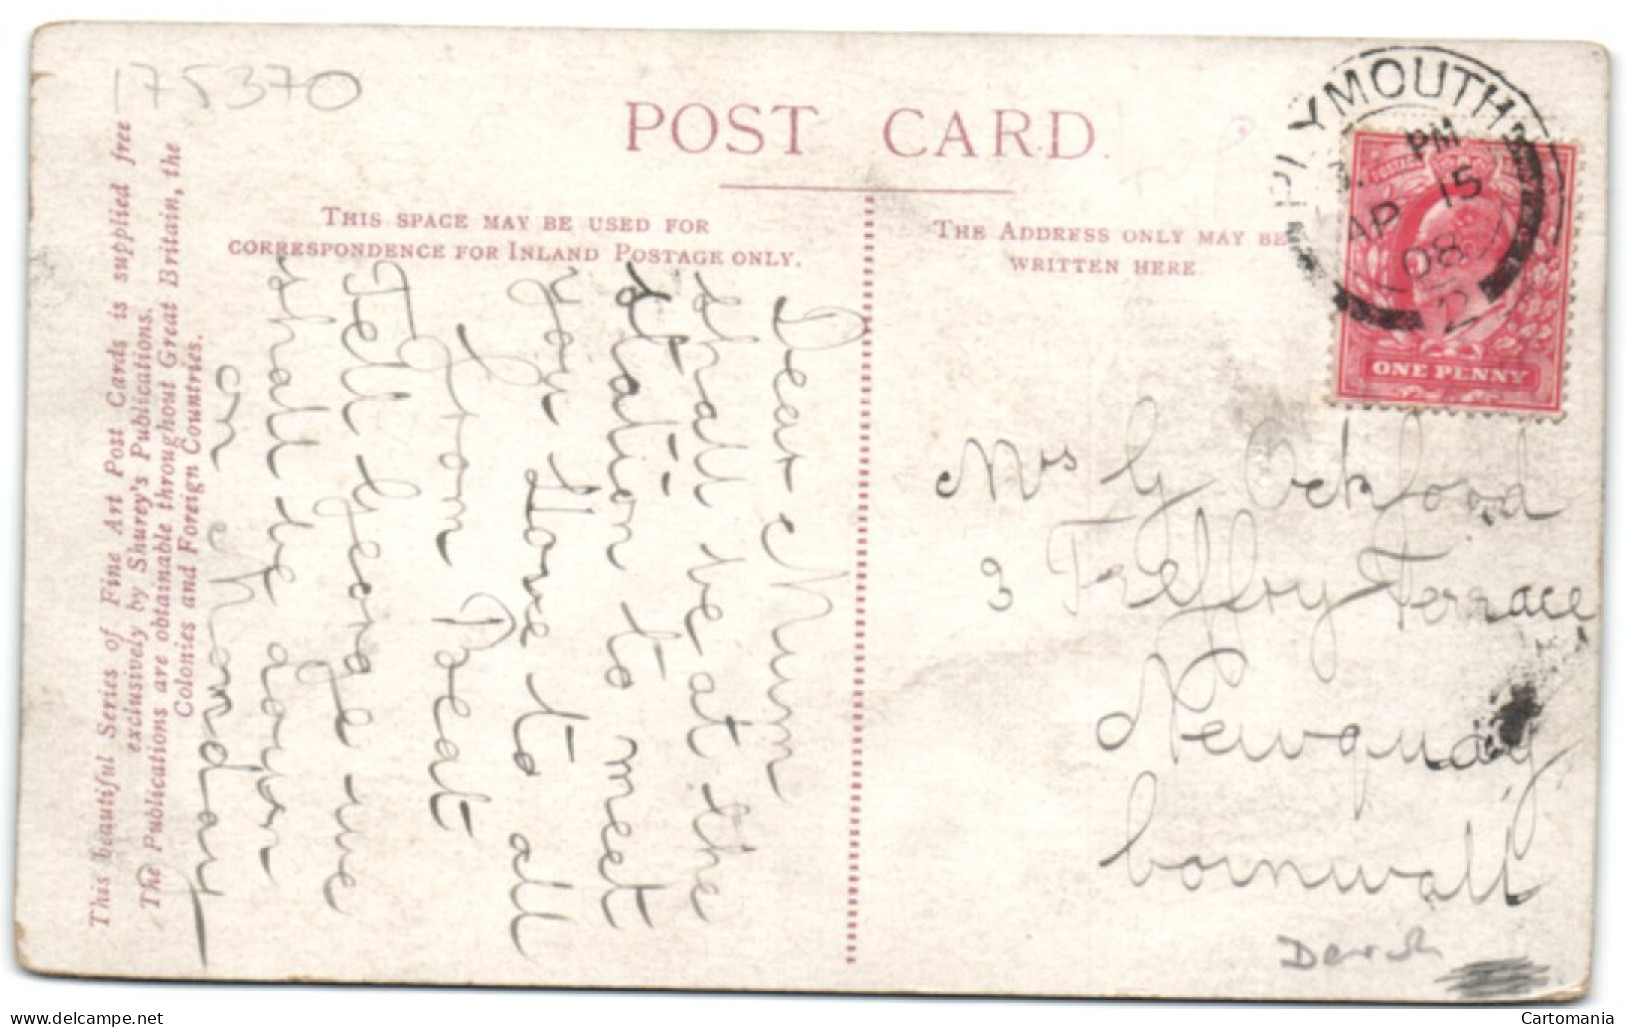 175370
POST CARD
THIS SPACE MAY BE USED FOR
CORRESPONDENCE FOR INLAND POSTAGE ONLY.
THE ADDRESS ONLY MAY BE
WRITTEN HERE.
This beautiful Series of Fine Art Post Cards is supplied free
exclusively by Shurey's Publications.
The Publications are obtainable throughout Great Britain, the
Colonies and Foreign Countries.
Dear Mum
shall be at the
station to meet
you Love to all
from Beat
Tell George we
shall be down
on Monday
PLYMOUTH
PM
AP 15
08
2
ONE PENNY
Mrs G Ockford
3 Treffry Terrace
Newquay
Cornwall
www.delcampe.net
Cartomania